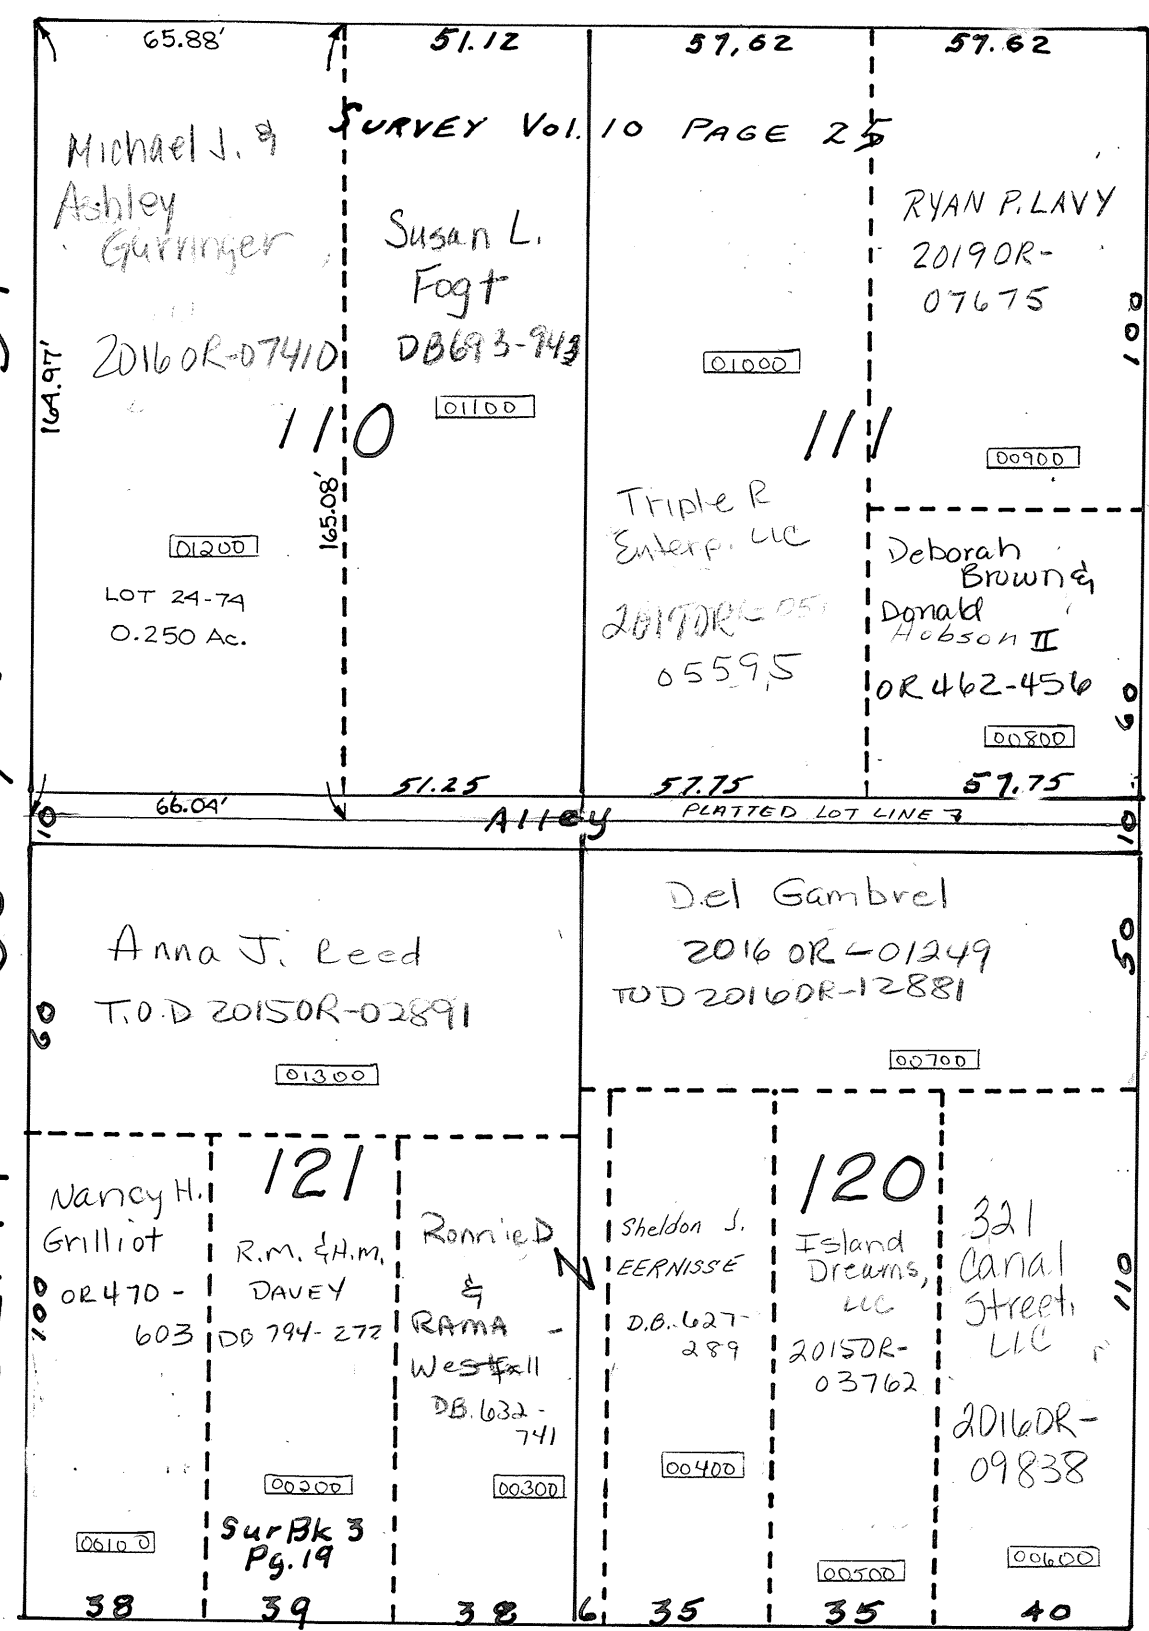 65.88'
51.12
57,62
57.62
SURVEY Vol. 10 PAGE 25
Michael J. &
Ashley
Gurringer
2016OR-07410
164.97'
110
165.08'
01200
LOT 24-74
0.250 Ac.
66.04'
Susan L.
Fogt
DB693-943
01100
51.25
01000
111
Triple R
Enterp. LLC
2017OR-05
05595
57.75
RYAN P. LAVY
2019OR-
07675
100
00900
Deborah
Brown &
Donald
Hobson II
OR462-456
60
00800
57.75
10
Alley
PLATTED LOT LINE
10
Anna J. Reed
T.O.D 2015OR-02891
60
01300
Del Gambrel
2016 OR-01249
TOD 2016OR-12881
50
00700
121
Nancy H.
Grilliot
OR470-
603
100
00100
38
R.M. & H.M.
DAVEY
DB 794-272
00200
Sur Bk 3
Pg. 19
39
Ronnie D
&
RAMA
Westfall
DB. 632-
741
00300
38
6
120
Sheldon J.
EERNISSE
D.B. 627-
289
00400
35
Island
Dreams,
LLC
2015OR-
03762
00500
35
321
Canal
Street,
LLC
2016OR-
09838
110
00600
40